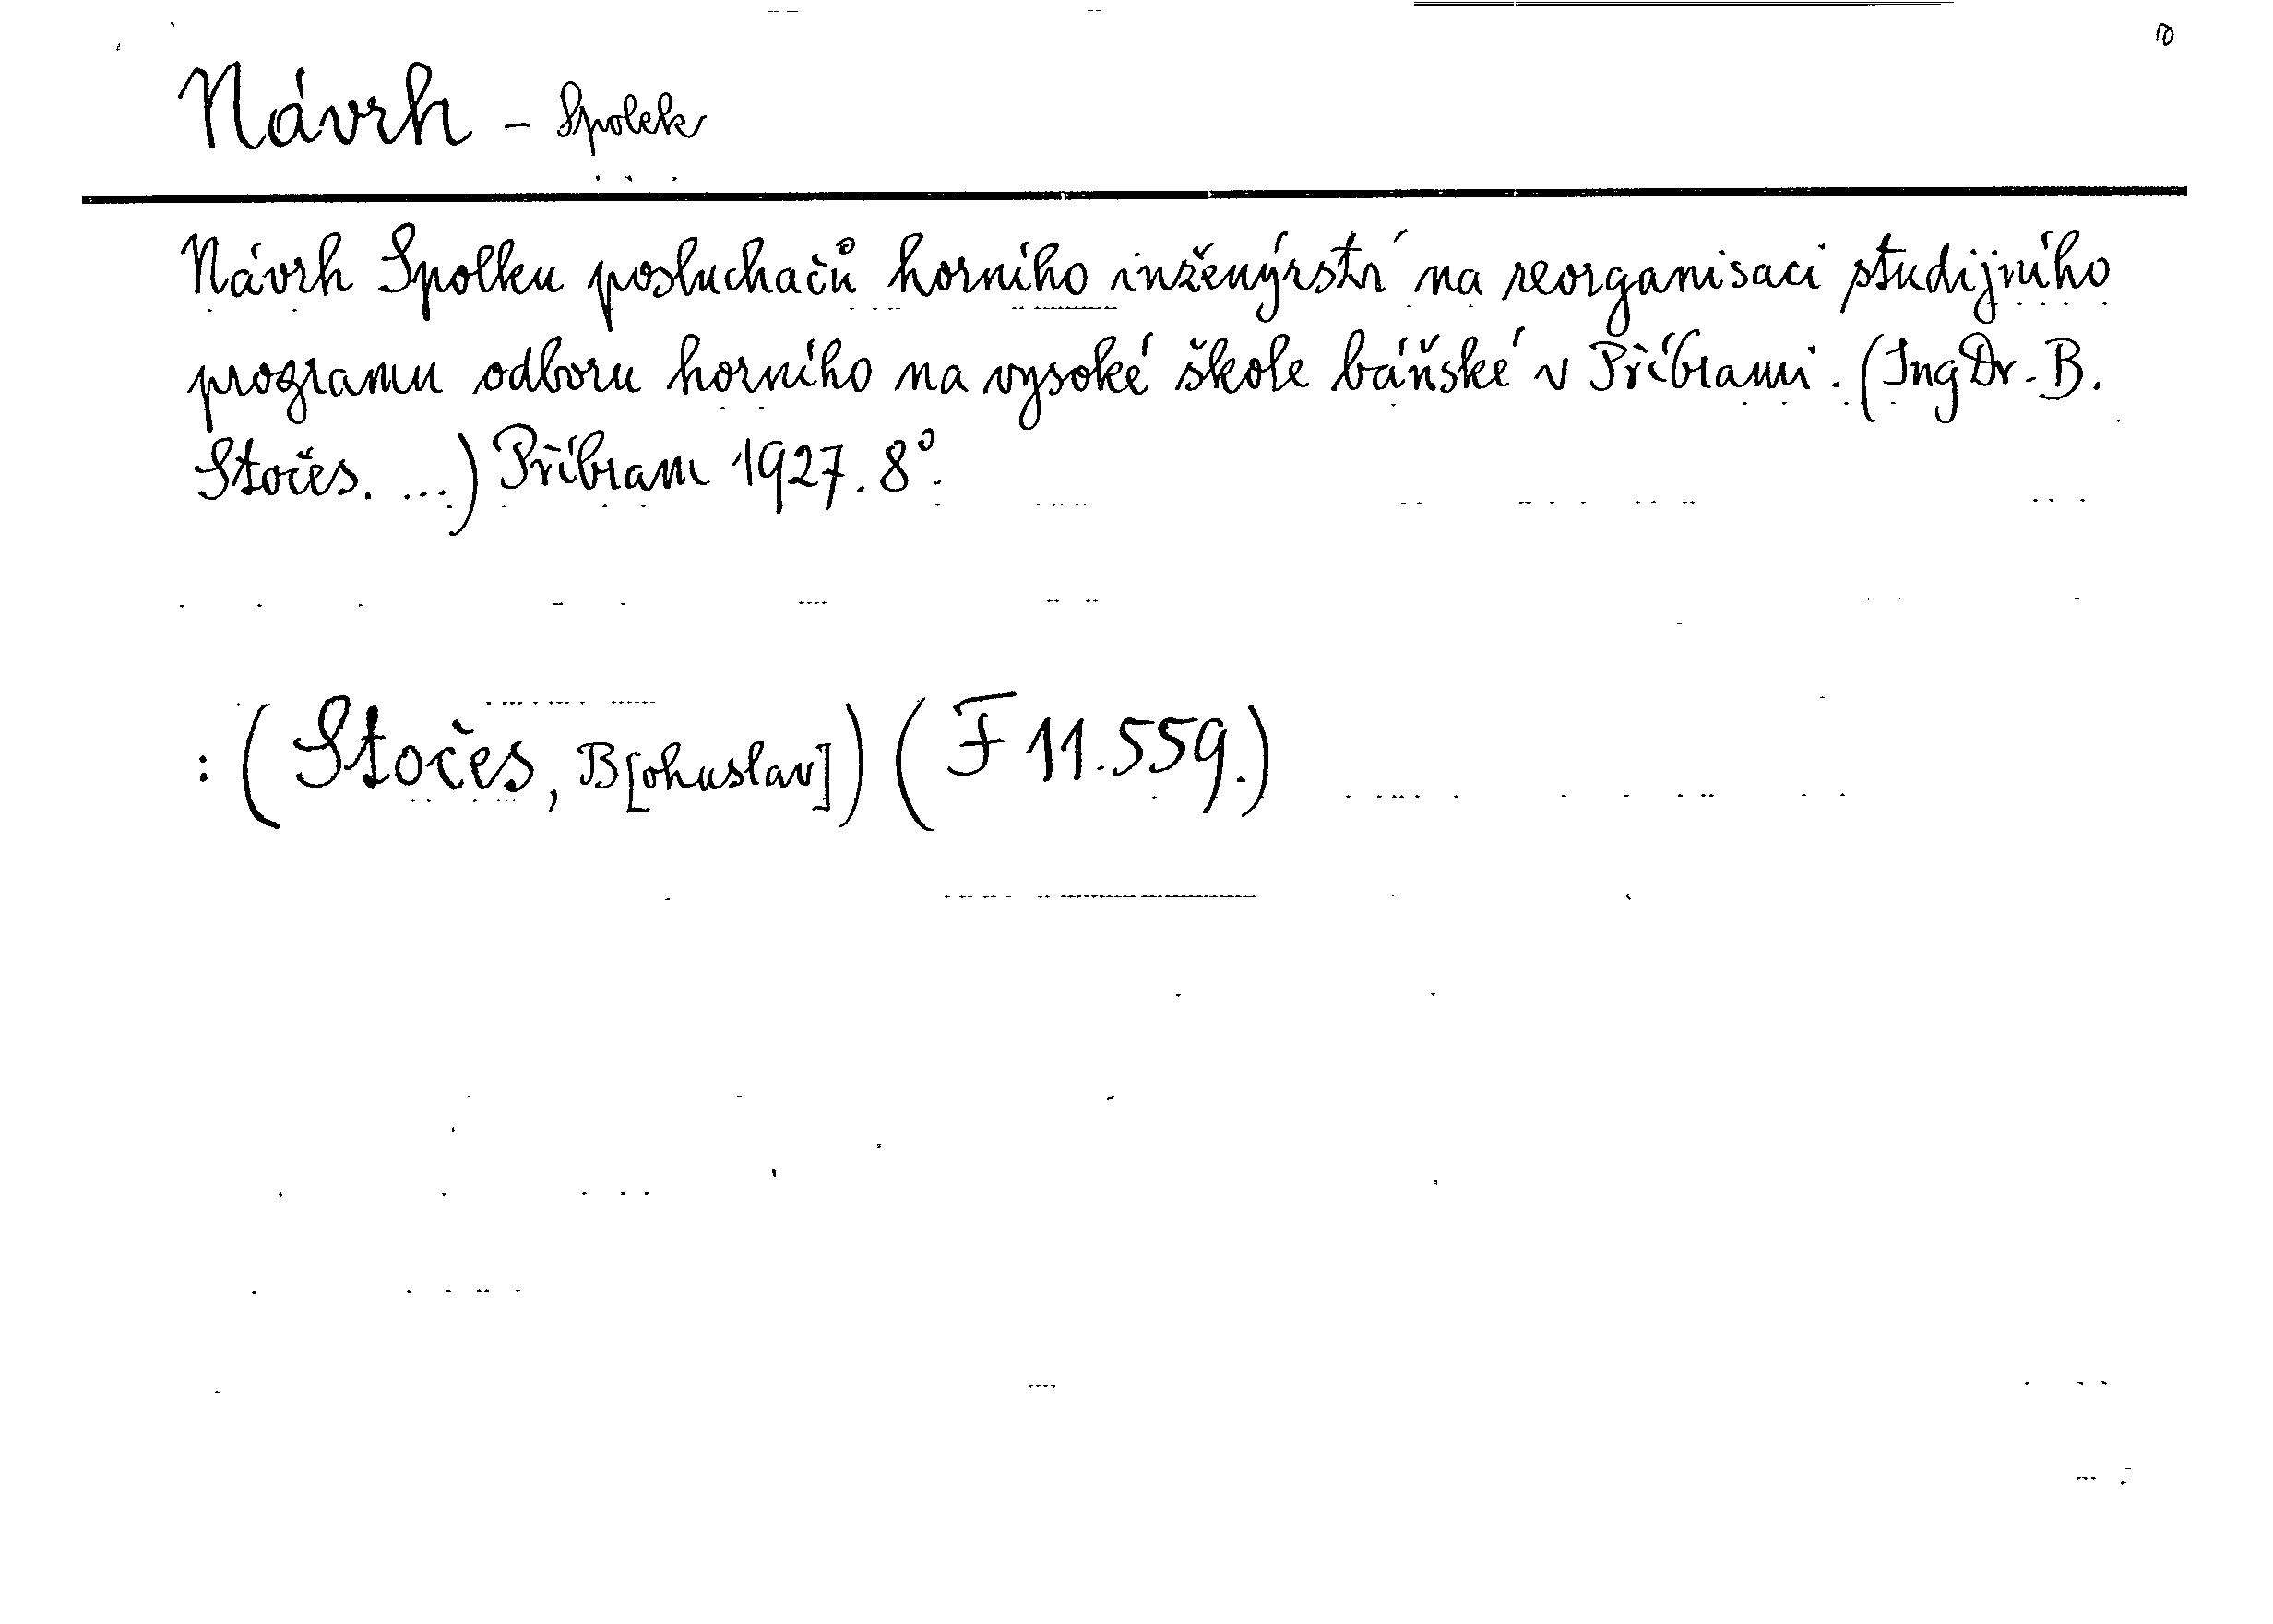 Návrh - Spolek
Návrh Spolku posluchačů horního inženýrství na reorganisaci studijního
programu odboru horního na vysoké škole báňské v Příbrami. (Ing Dr. B.
Stočes. ...) Příbram 1927. 8°.
: (Stočes, B[ohuslav]) (F 11.559.)